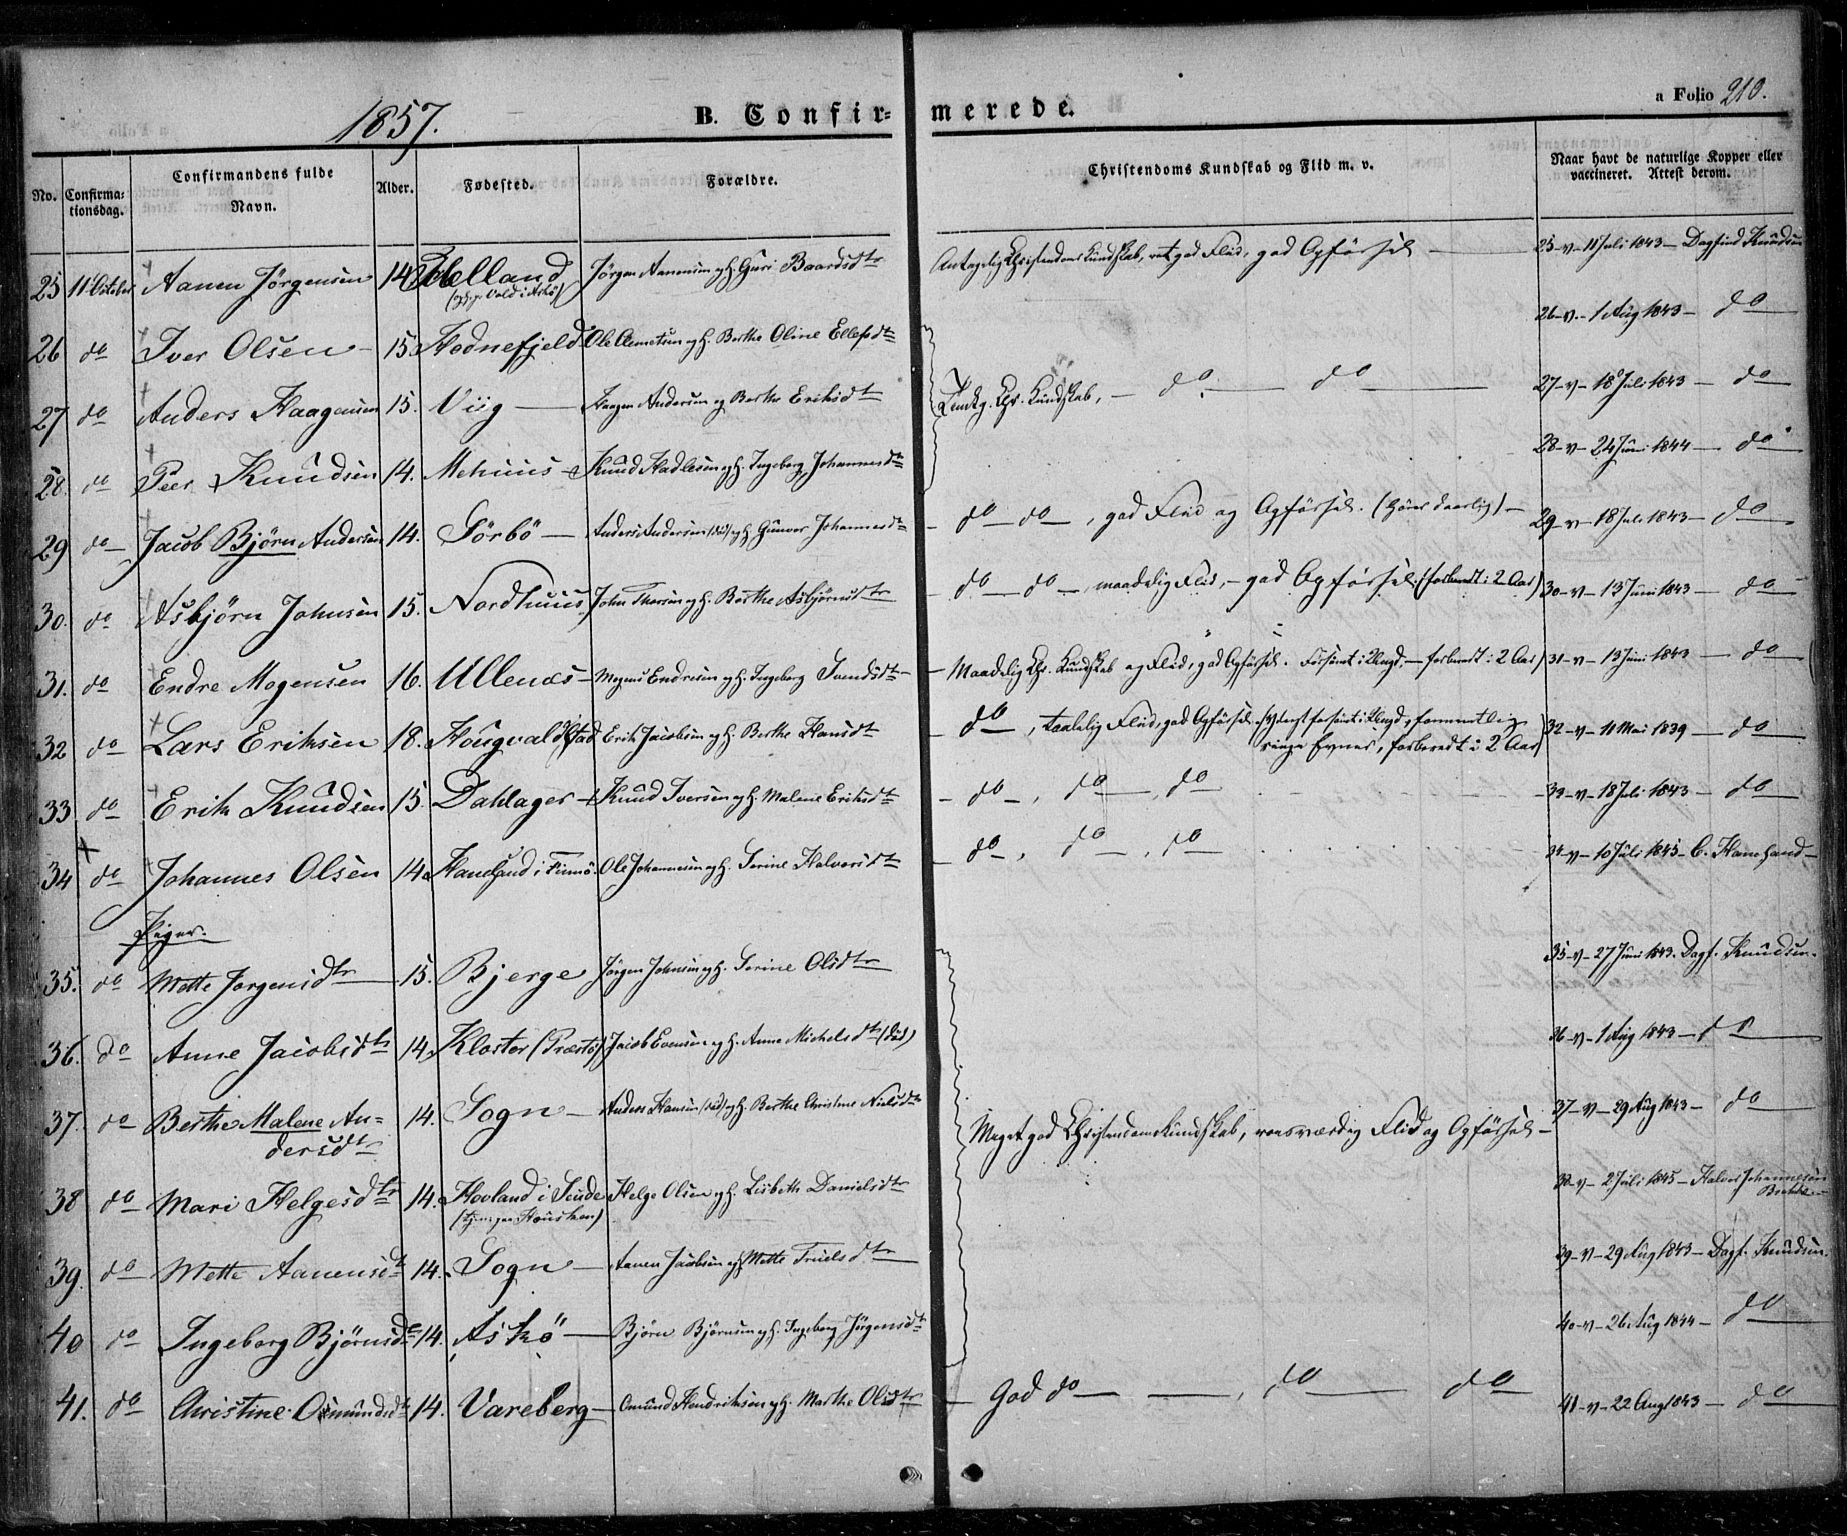 1857.
B. Confir-
merede.
a Folio 210.
No.
Confirma-
tionsdag.
Confirmandens fulde
Navn.
Alder.
Fødested.
Forældre.
Christendoms Kundskab og Flid m. v.
Naar havt de naturlige Kopper eller
vaccineret. Attest derom.
25 11 October Aanen Jørgensen 14 Helland Jørgen Aanensen og H. Guri Baardsdtr Antagelig Christendoms Kundskab, ret god Flid, god Opførsel — 25-v-11 Juli 1843- Dagfind Knudsen
26 do Iver Olsen - 15. Hodnefjeld Ole Clemetsen og H. Berthe Oline Ellefsdtr 26-v-1 Aug 1843- do
27 do Anders Haagensen 15. Viig — Haagen Andersen og Berthe Eriksdtr Chr. Kundskab, - do. — do — 27-v-18 Juli 1843 - do
28 do Peer Knudsen 14. Mehuus - Knud Hadlesen og H. Ingeborg Johannesdtr 28-v-24 Juni 1844 - do
29 do Jacob Bjørn Andersen 14. Sørbö — Anders Andersen (død) og H. Gunvor Johannesdtr - do - do -, god Flid og Opførsel. (hører daarlig) - 29-v-18 Juli 1843 - do
30. do Asbjørn Johnsen 15. Nordhuus John Thorsen og H. Berthe Asbjørnsdtr - do - do -, maadelig Flid, - god Opførsel (forberedt i 2 Aar) 30-v-13 Juni 1843 - do
31. do Endre Mogensen 16. Ullenæs - Mogens Endresen og H. Ingeborg Svendsdtr - Maadelig Chr. Kundskab og Flid, god Opførsel. Forsømt i Ungd. - forberedt i 2 Aar) 31-v-13 Juni 1843 - do
32 do Lars Eriksen 18. Hougvaldstad Erik Jacobsen og H. Berthe Hansdtr - do -, taalelig Flid, god Opførsel.
ringe Evner, forberedt i 2 Aar) 32-v-11 Mai 1839 - do
33 do Erik Knudsen 15. Dahlager - Knud Iversen og H. Malene Eriksdtr - do -, do -, do 33-v-18 Juli 1843 - do
34 do Johannes Olsen 14. i Finnö. Ole Johannesen og H. Serine Halvorsdtr - do -, do -, do 34-v-10 Juli 1845-
Piger.
35. do Mette Jørgensdtr 15. Bjerge Jørgen Johnsen og H. Serine Olsdtr 35-v-27 Juni 1843. Dagf. Knudsen.
36. do Anne Jacobsdtr 14. Kloster Jacob Evensen og H. Anne Michelsdtr (død) 36-v-1 Aug 1843 - do
37. do Berthe Malene An-
dersdtr 14. Sogn - Anders Hansen (død) og H. Berthe Christine Nielsdtr Meget god Christendomskundskab, roesværdig Flid og Opførsel - 37-v-29 Aug 1843 - do
38 do Mari Helgesdtr 14. Hovland i Helge Olsen og H. Lisbeth Danielsdtr 38-v-2 Juli 1845 - Halvor Johannesen
39. do Mette Aanensdtr 14. Sogn - Aanen Jacobsen og H. Mette Truelsdtr 39-v-29 Aug 1843 - Dagf. Knudsen
40 do Ingeborg Bjørnsdtr 14. Askö — Bjørn Bjørnsen og H. Ingeborg Jörgensdtr 40-v-26 Aug 1844 - do
41. do Christine Osmundsdtr 14. Vareberg - Omund Hendriksen og H. Marthe Olsdtr - God do — —, do — do 41-v-22 Aug 1843 - do